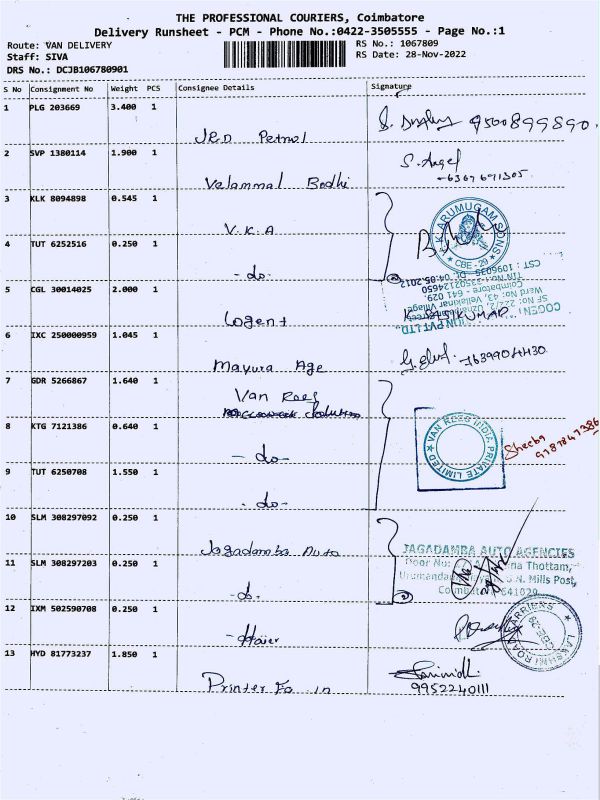 THE PROFESSIONAL COURIERS, Coimbatore
Delivery Runsheet - PCM - Phone No.:0422-3505555 - Page No.:1
Route: VAN DELIVERY RS No.: 1067809
Staff: SIVA RS Date: 28-Nov-2022
DRS No.: DCJB106780901
S No Consignment No Weight PCS Consignee Details Signature
1 PLG 203669 3.400 1
9500899890.
JRD Petrol
2 SVP 1380114 1.900 1
S. Angel
6369691305
Velammal Bodhi
3 KLK 8094898 0.545 1
V.K.A
K. ARUMUGAM SONS
★ CBE - 29 ★
4 TUT 6252516 0.250 1
- do -
5 CGL 30014025 2.000 1
Cogent
CST : 1096035 Dt. 04.05.2012
TIN No.: 33502124650
Coimbatore - 641 029.
Ward No: 43, Vellakinar Village
SF No: 222/2,
PVT LTD.,
K. SASIKUMAR
6 IXC 250000959 1.045 1
Mayura Age
7639904430
7 GDR 5266867 1.640 1
Van Rees
8 KTG 7121386 0.640 1
- do -
VAN REES INDIA PRIVATE LIMITED ★
Sheeba
9787847386
9 TUT 6250708 1.550 1
- do -
10 SLM 308297092 0.250 1
Jagadamba Auto
JAGADAMBA AUTO AGENCIES
11 SLM 308297203 0.250 1
Door No: Thottam,
S.N. Mills Post,
Coimbatore 641029
- do -
12 IXM 502590708 0.250 1
- Haier
LAKSHMI ROAD CARRIERS ★
CBE-29
13 HYD 81773237 1.850 1
Printer Fo in
9952240111